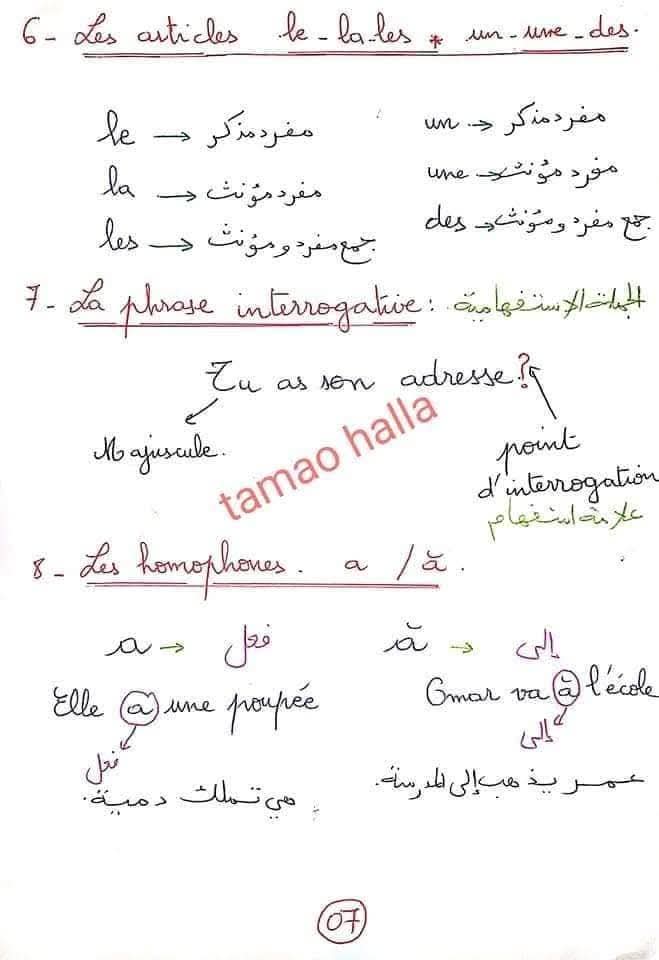 6 - Les articles le - la - les * un - une - des.
le → مفرد مذكر
un → مفرد مذكر
la → مفرد مؤنث
une → مفرد مؤنث
les → جمع مفرد و مؤنث
des → جمع مفرد و مؤنث
7 - La phrase interrogative : الجملة الاستفهامية
Tu as son adresse ?
Majuscule.
point
d'interrogation
علامة استفهام
tamao halla
8 - Les homophones. a / ă.
a → فعل
ă → إلى
Elle a une poupée
Omar va ă l'école
فعل
إلى
هي تملك دمية.
عمر يذهب إلى المدرسة.
07